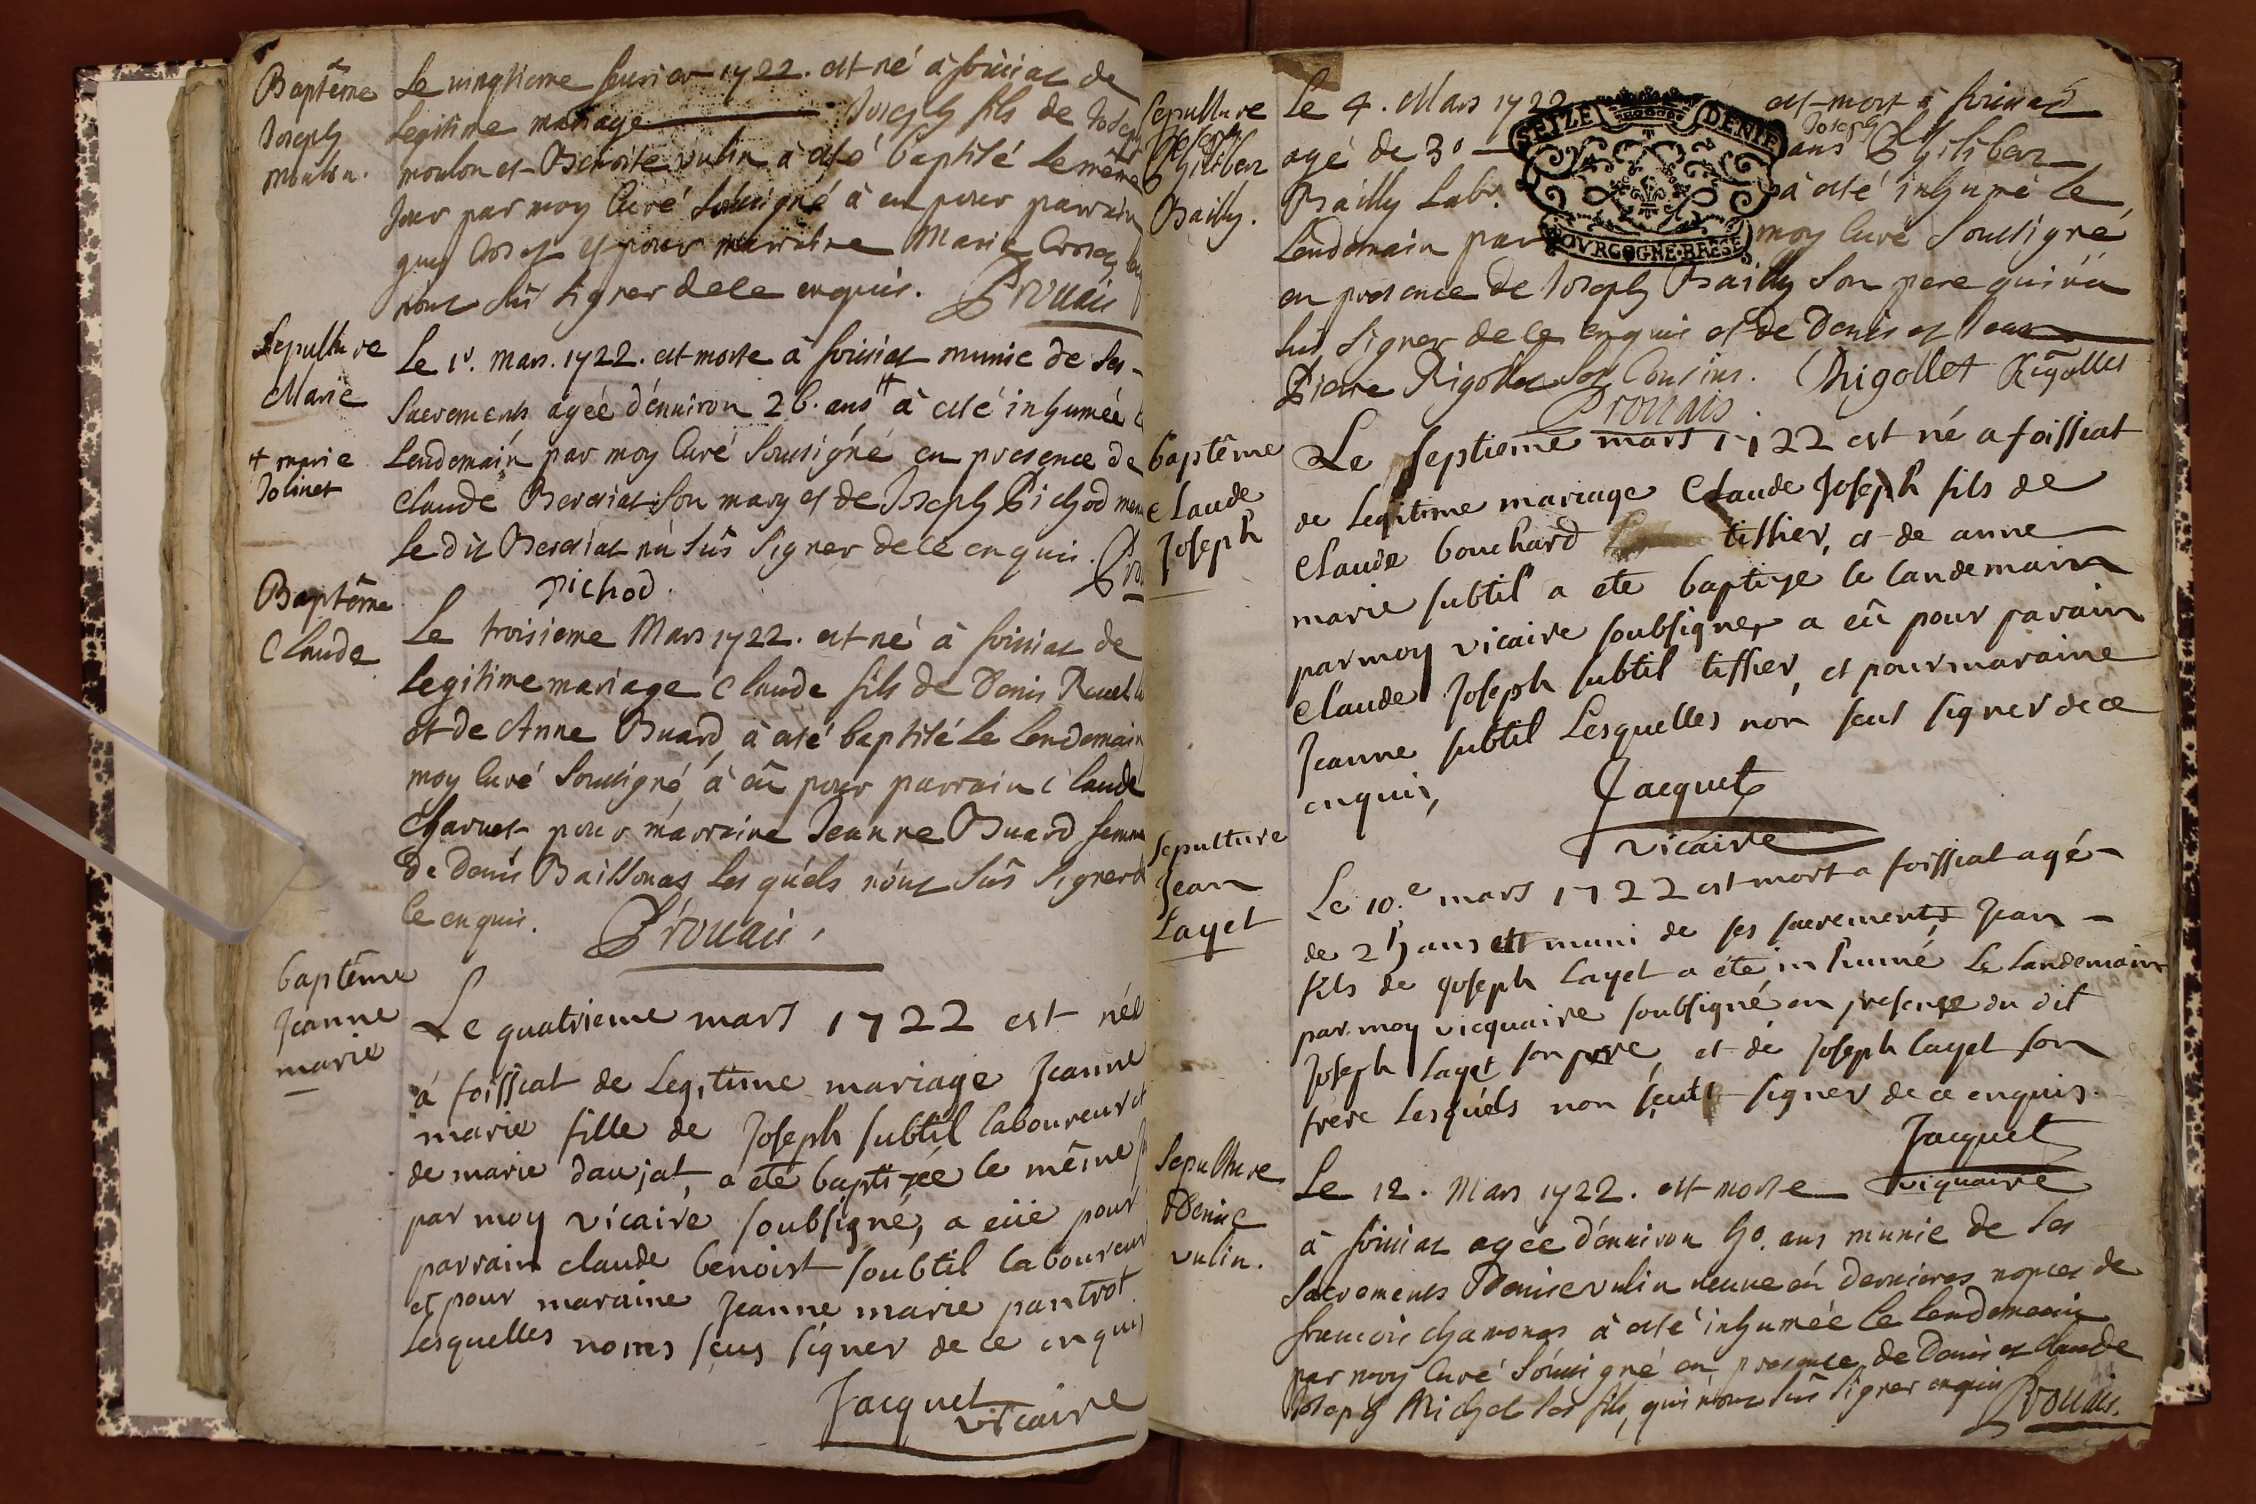 Baptême
Joseph
moulon.
Le vingtieme feurier 1722. est né à foissiat de
legitime mariage Joseph fils de Joseph
moulon et Benoite vulin à esté baptisé le même
jour par moy Curé soussigné à eu pour parrain
guy et pour marraine Marie
n'ont sûs signer dece enquis. Prouais
Sepulture
Marie
+ marie
Jolinet
Le 1r. Mars. 1722. est morte à foissiat munie de ses
sacrements agée d'énuiron 26. ans + à esté inhumée
Lendemain par moy Curé soussigné en presence de
Claude Bereziat son mary et de Joseph Pichod
le dit Bereziat n'à sûs signer dece enquis.
pichod.
Baptême
Claude
Le troisieme Mars 1722. est né à foissiat de
legitime mariage Claude fils de Denis
et de Anne Buard, à esté baptisé le lendemain
moy Curé soussigné, à eû pour parrain Claude
Charuet pour marraine Jeanne Buard femme
de Denis Baillonas les quéls n'ónt sûs signer de
ce enquis. Prouais.
baptême
jeanne
marie
Le quatrieme mars 1722 est née
à foissiat de Legitime mariage Jeanne
marie fille de Joseph subtil laboureur et
de marie daujat, a ete baptizée le même
par moy vicaire soubsigné, a eüe pour
parrain claude benoist soubtil laboureur
et pour maraine Jeanne marie pantrot.
Lesquelles nonts sçus signer de ce enquis
Jacquet
vicaire
Sepulture
Joseph
Philibert
Bailly.
Le 4. Mars 1722 est mort à foissiat
agé de 30 ans Joseph Philibert
Bailly Labr. à esté inhumé le
Lendemain par moy Curé soussigné
SEIZE DENIE
BOVRGOGNE·BRESSE
en presence de Joseph Bailly son pere qui n'à
sus signer dece enquis et de Denis et Jean
Pierre Rigollet ses Cousins. Rigollet Rigollet
Prouais.
baptême
claude
joseph
Le septieme mars 1722 est né a foissiat
de legitime mariage Claude Joseph fils de
Claude bouchard tissier, et de anne
marie subtil a ete baptize le landemain
par moy vicaire soubsigner a eû pour parain
Claude Joseph subtil tissier, et pour maraine
Jeanne subtil Lesquelles non seus signer de ce
enquis,
Jacquet
vicaire
sepulture
Jean
Layet
Le 10.e mars 1722 est mort a foissiat agé
de 25 ans et muni de ses sacrements, Jean
fils de joseph Layet a ete inhumé Le landemain
par moy vicquaire soubsigné en presence du dit
joseph layet son pere, et de joseph layet son
frere Lesquéls non sçeuts signer de ce enquis.
Jacquet
viquaire
Sepulture
Denise
vulin.
Le 12. Mars 1722. est morte
à foissiat agée d'énuiron 50. ans munie de ses
sacrements Denise vulin ueuue én dernieres nopces de
francois chamonas à esté inhumée le lendemain
par moy Curé soussigné en presence de Denis et Claude
Joseph Michel ses fils, qui n'ónt sûs signer enquis
Prouais.